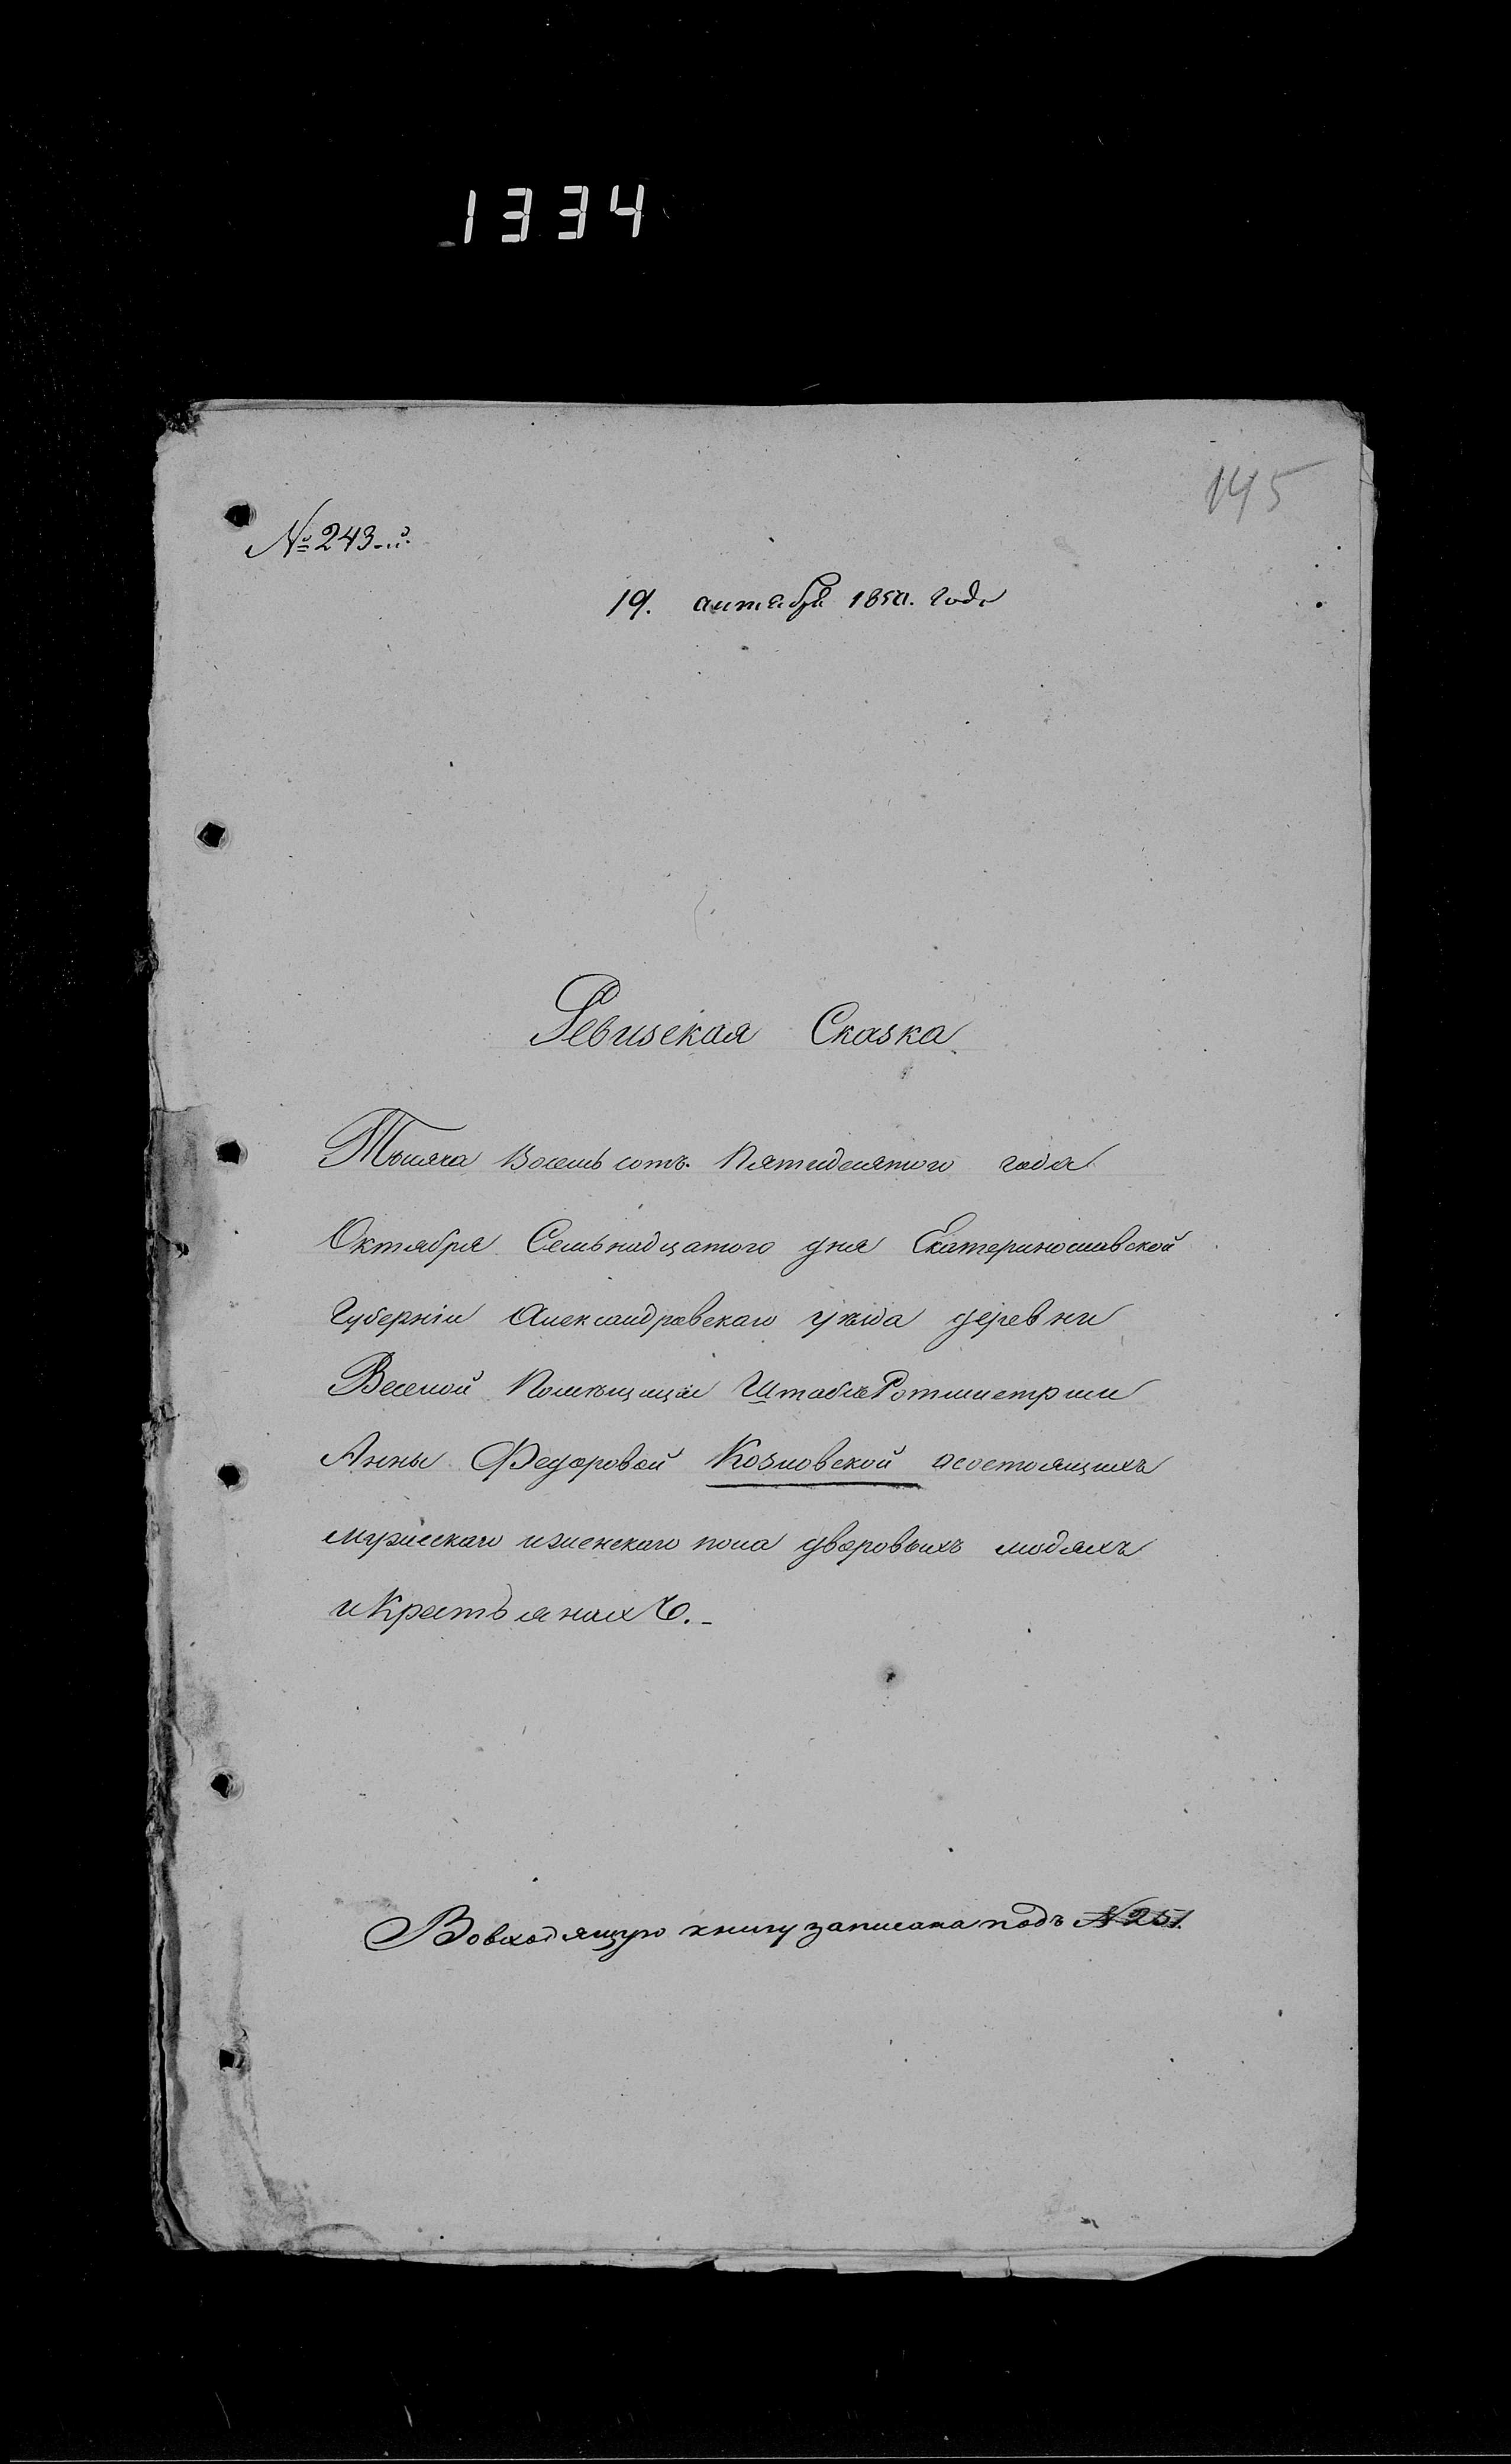 1334
145
№ 243-й.
19. октября 1850. года
Ревизская Сказка
Тысяча Восемь сотъ Пятидесятого года
Октября Семьнадцатого дня Екатеринославской
Губерніи Александровскаго уѣзда деревни
Веселой Помѣщицы Штабсъ Ротмистрши
Анны Федоровой Козловской осостоящихъ
мужескаго иженскаго пола дворовыхъ людяхъ
иКрестьянахъ.-
Вовходящую книгу записана подъ № 251.